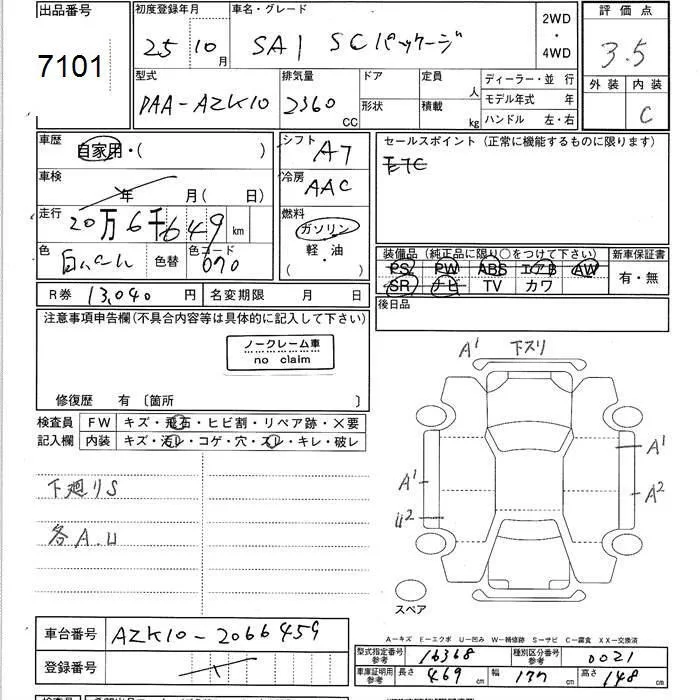 出品番号 初度登録年月 車名・グレード 2WD・4WD 評価点
7101 25 10月 SAI SCパッケージ 3.5
型式 排気量 ドア 定員 人 ディーラー・並行 外装 内装
DAA-AZK10 2360 CC 形状 積載 kg モデル年式 年 C
ハンドル 左・右
車歴 自家用・( )
シフト AT
セールスポイント (正常に機能するものに限ります)
ETC
車検 年 月( 日)
冷房 AAC
走行 20万6千649 km
燃料 ガソリン・軽・油 ( )
色 白パール 色替 色コード 070
装備品 (純正品に限り○をつけて下さい) 新車保証書
PS PW ABS エアB AW 有・無
SR ナビ TV カワ
R券 13,040 円 名変期限 月 日
後日品
注意事項申告欄(不具合内容等は具体的に記入して下さい)
ノークレーム車
no claim
修復歴 有 〔箇所 〕
検査員 FW キズ・飛石・ヒビ割・リペア跡・×要
記入欄 内装 キズ・汚レ・コゲ・穴・スレ・キレ・破レ
下廻りS
各A.U
A1 下スリ
A1
A1
A2
U2
スペア
A-キズ E-エクボ U-凹み W-補修跡 S-サビ C-腐食 XX-交換済
車台番号 AZK10-2066459
登録番号
型式指定番号 参考 16368 種別区分番号 参考 0021
車庫証明用 参考 長さ 469 cm 幅 177 cm 高さ 148 cm